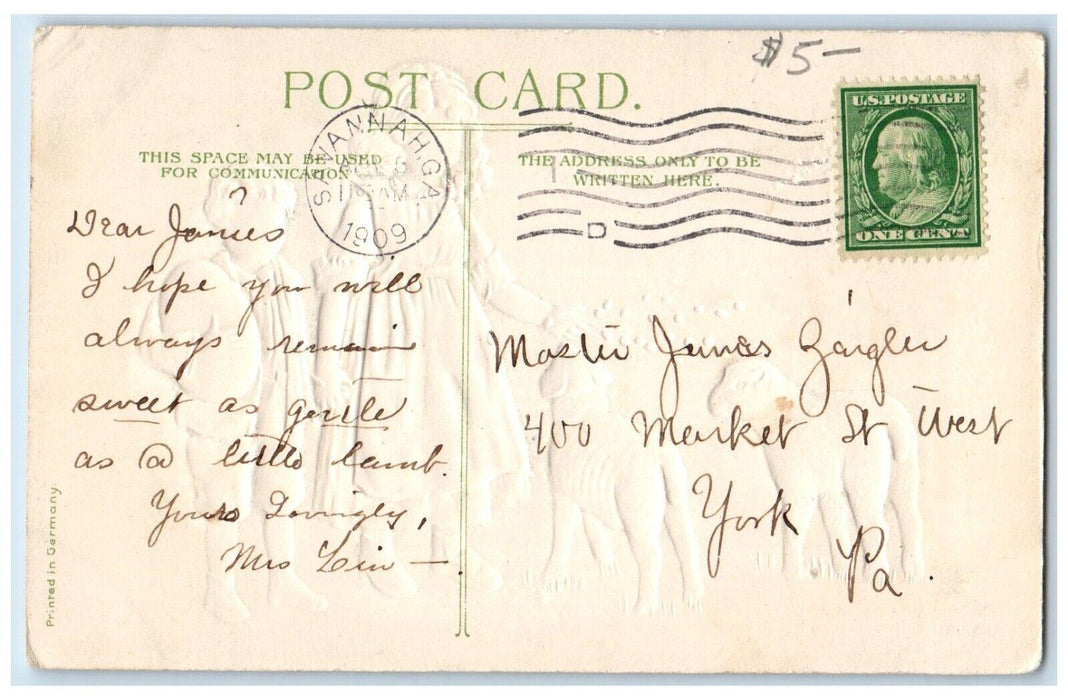 $5–
POST CARD.
U.S. POSTAGE
ONE CENT
SAVANNAH, GA
11 AM
1909
D
THIS SPACE MAY BE USED
FOR COMMUNICATION
THE ADDRESS ONLY TO BE
WRITTEN HERE.
Dear James
I hope you will
always remain
sweet as gentle
as a little lamb.
Yours Lovingly,
Mrs
Master James Zeigler
400 Market St West
York
Pa.
Printed in Germany.